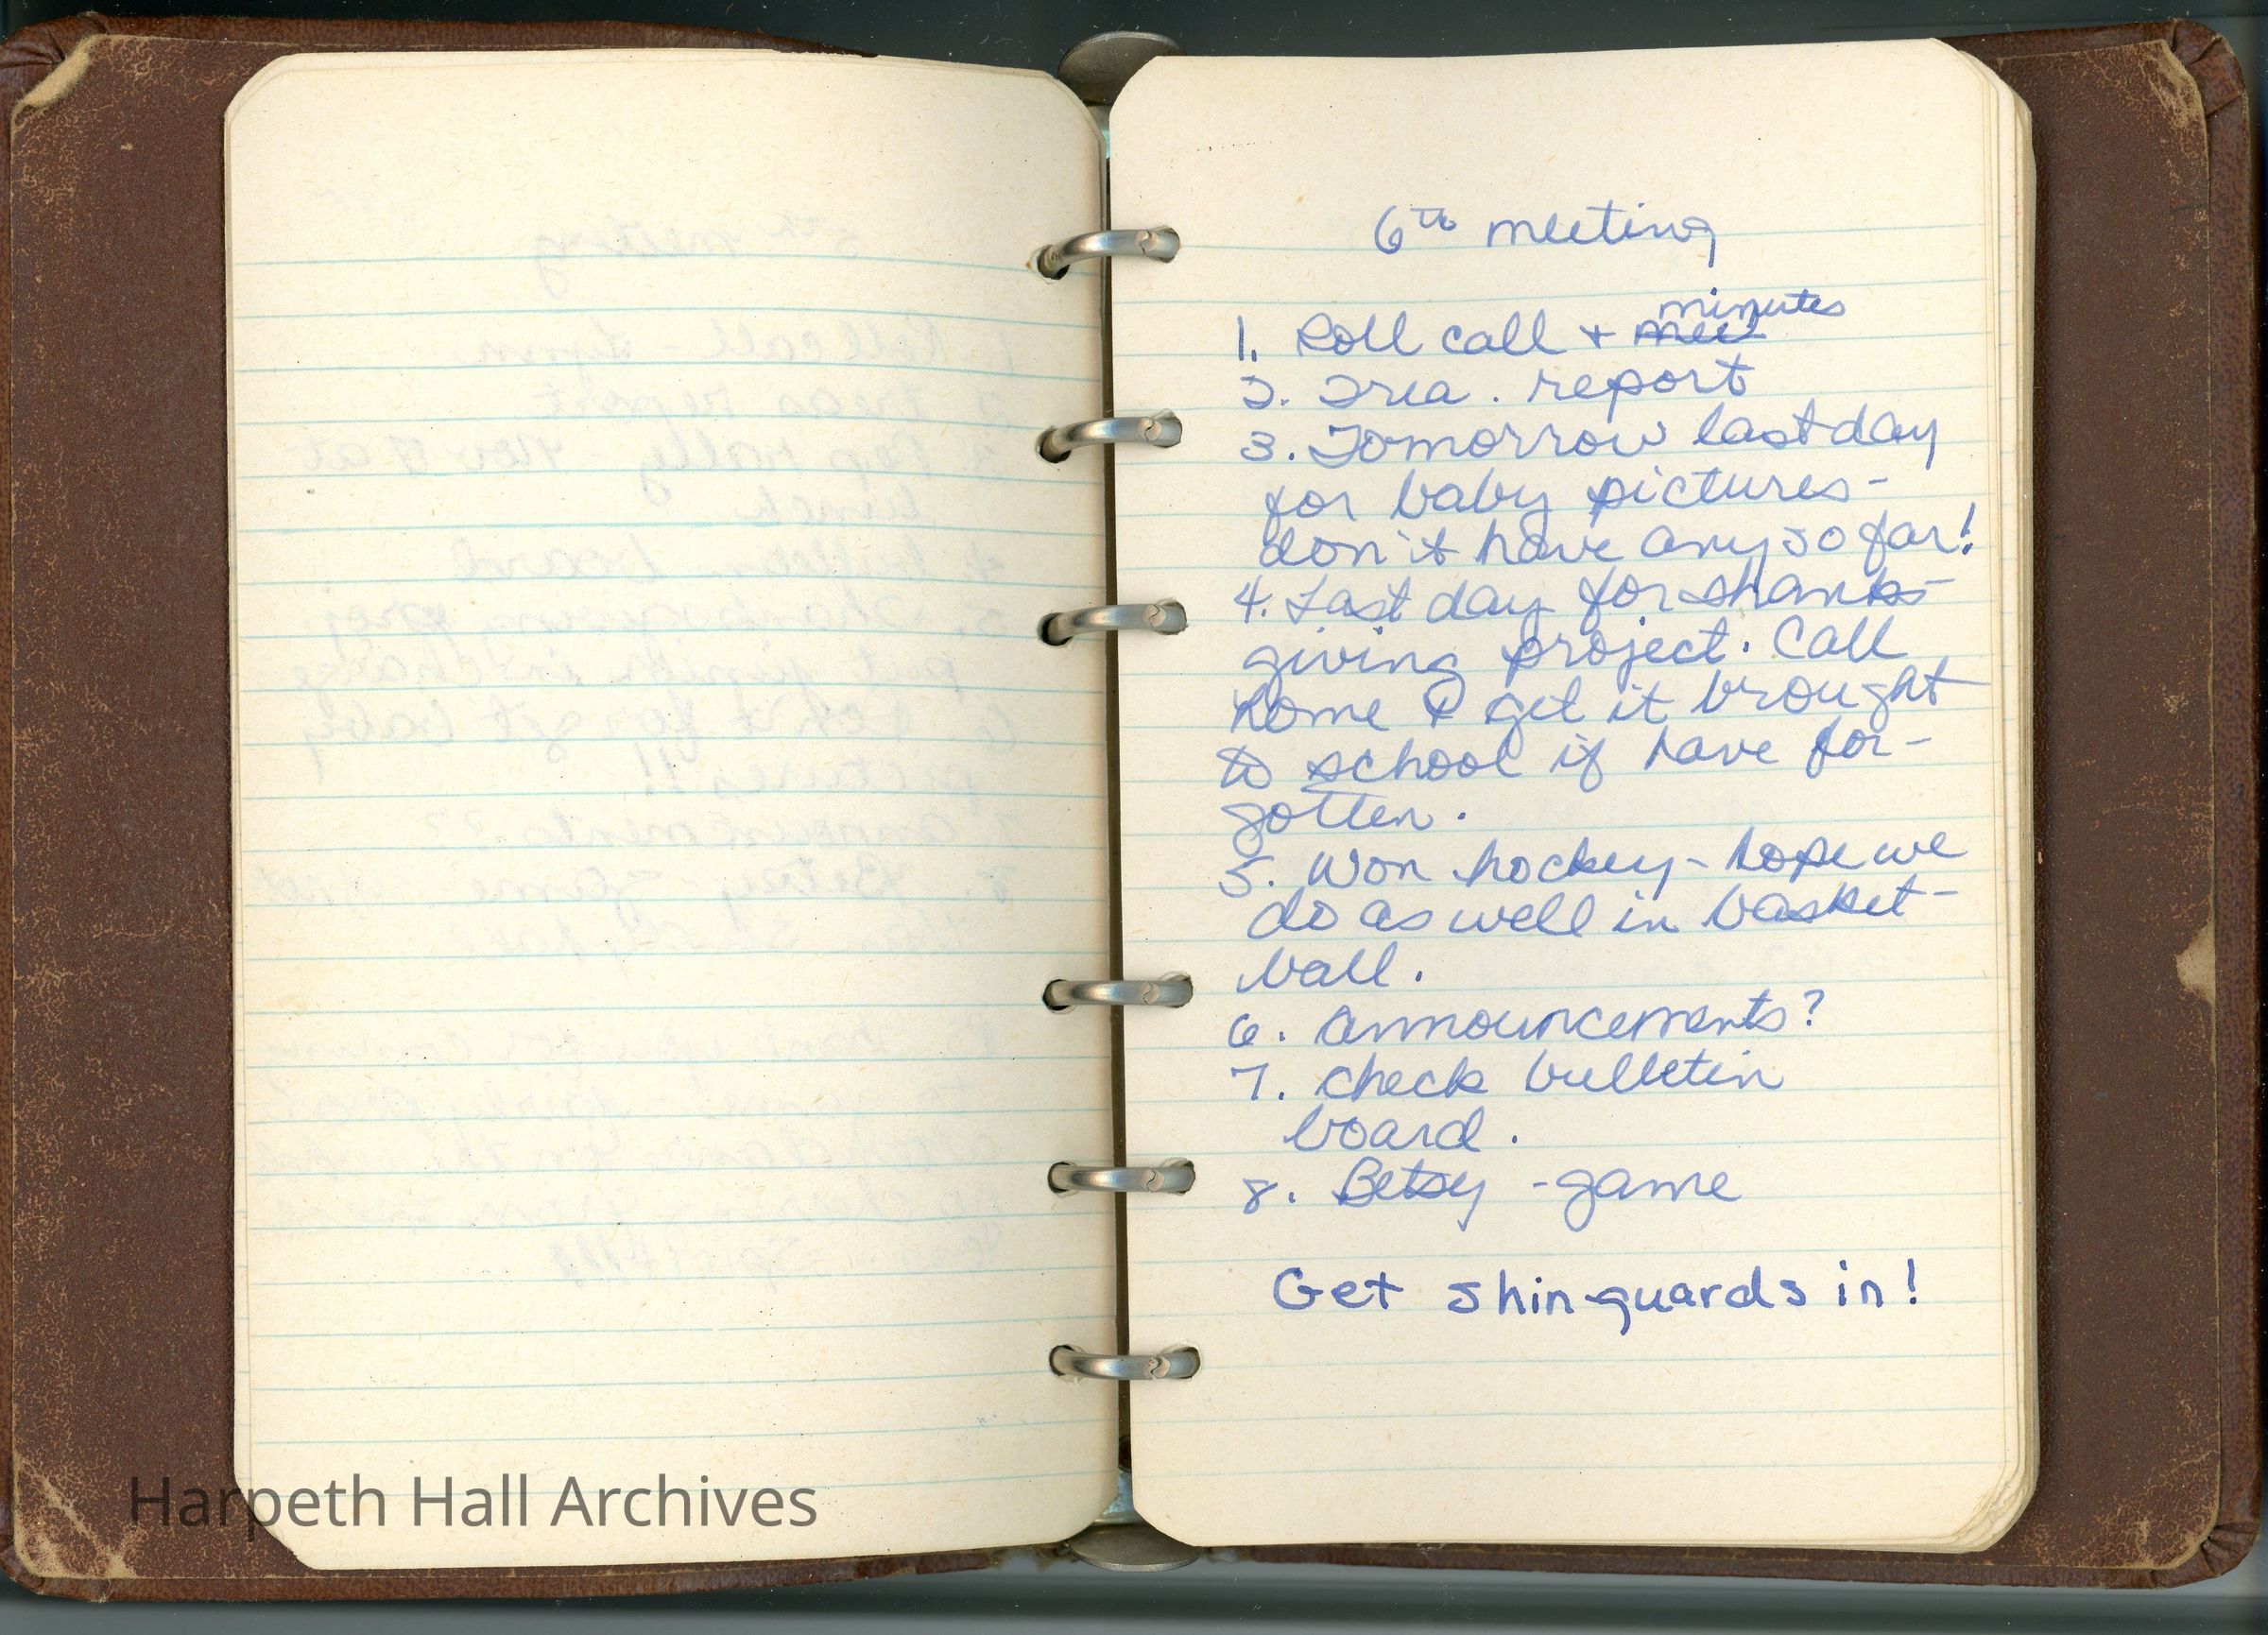 6th meeting
minutes
1. Roll call + mee
2. Trea. report
3. Tomorrow last day
for baby pictures-
don't have any so far!
4. Last day for thanks-
giving project. Call
home & get it brought
to school if have for-
gotten.
5. Won hockey - hope we
do as well in basket-
ball.
6. announcements?
7. check bulletin
board.
8. Betsy - game
Get shin-guards in!
Harpeth Hall Archives